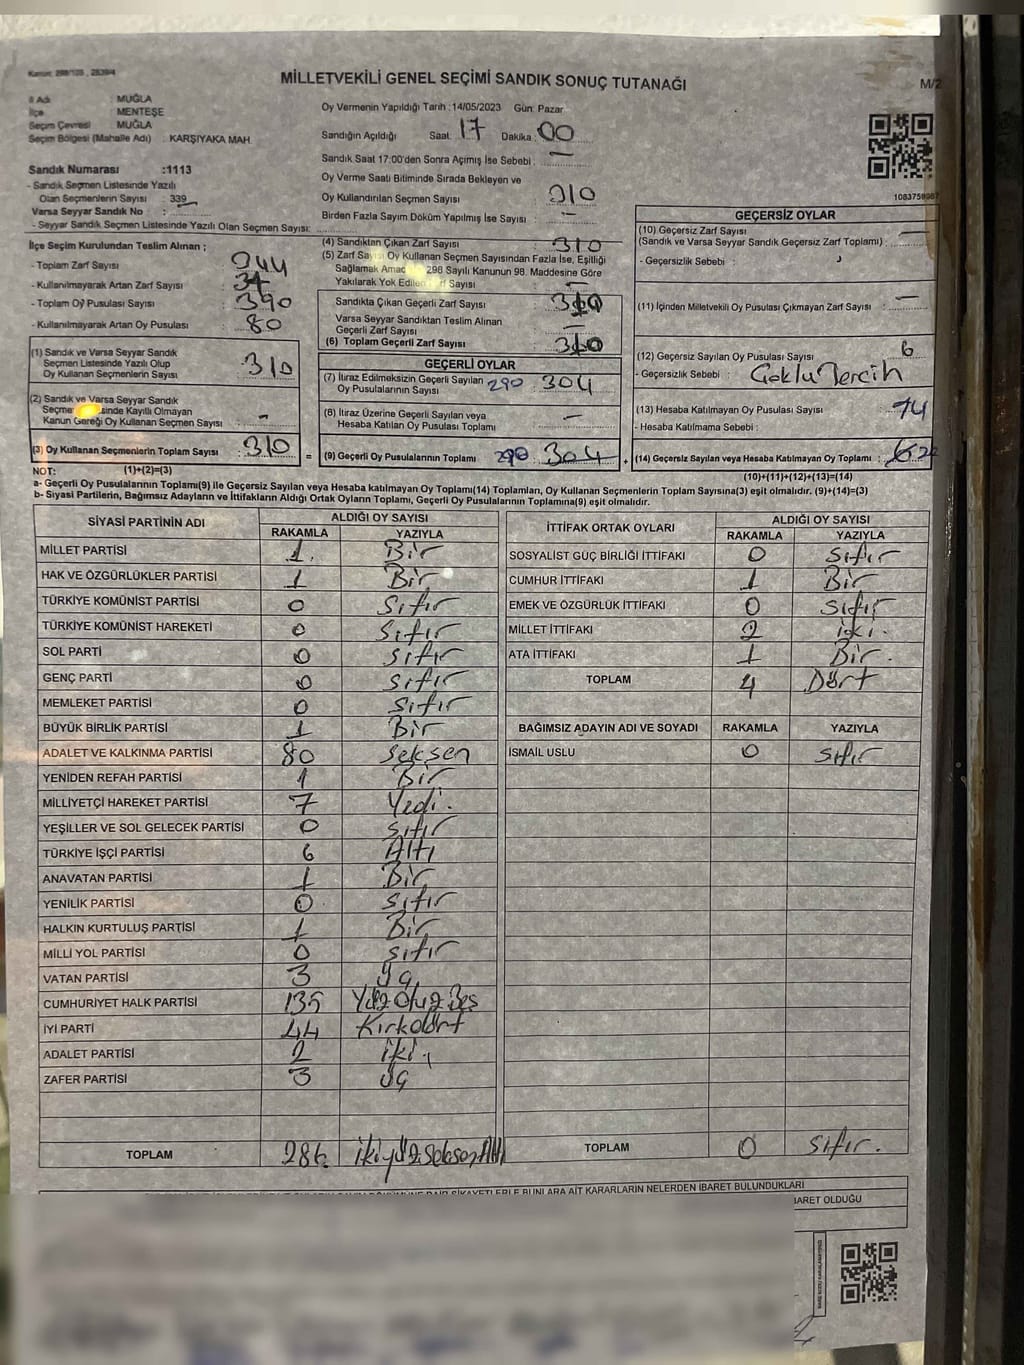 Kanun: 298/105 , 2839/4
MİLLETVEKİLİ GENEL SEÇİMİ SANDIK SONUÇ TUTANAĞI
M/2
İl Adı : MUĞLA
İlçe : MENTEŞE
Seçim Çevresi : MUĞLA
Seçim Bölgesi (Mahalle Adı) : KARŞIYAKA MAH.
Sandık Numarası :1113
- Sandık Seçmen Listesinde Yazılı
Olan Seçmenlerin Sayısı : 339
Varsa Seyyar Sandık No :
- Seyyar Sandık Seçmen Listesinde Yazılı Olan Seçmen Sayısı:
Oy Vermenin Yapıldığı Tarih :14/05/2023 Gün: Pazar
Sandığın Açıldığı Saat: 17 Dakika: 00
Sandık Saat 17:00'den Sonra Açımış İse Sebebi : —
Oy Verme Saati Bitiminde Sırada Bekleyen ve
Oy Kullandırılan Seçmen Sayısı : 310
Birden Fazla Sayım Döküm Yapılmış İse Sayısı : —
İlçe Seçim Kurulundan Teslim Alınan ;
- Toplam Zarf Sayısı : 344
- Kullanılmayarak Artan Zarf Sayısı : 34
- Toplam Oy Pusulası Sayısı : 390
- Kullanılmayarak Artan Oy Pusulası : 80
(1) Sandık ve Varsa Seyyar Sandık
Seçmen Listesinde Yazılı Olup
Oy Kullanan Seçmenlerin Sayısı : 310
(2) Sandık ve Varsa Seyyar Sandık
Kayıtlı Olmayan
Kanun Gereği Oy Kullanan Seçmen Sayısı : -
(3) Oy Kullanan Seçmenlerin Toplam Sayısı : 310
(4) Sandıktan Çıkan Zarf Sayısı : 310
(5) Zarf Oy Kullanan Seçmen Sayısından Fazla İse, Eşitliği
Sağlamak 298 Sayılı Kanunun 98. Maddesine Göre
Yakılarak Yok Sayısı : —
Sandıkta Çıkan Geçerli Zarf Sayısı : 310
Varsa Seyyar Sandıktan Teslim Alınan
Geçerli Zarf Sayısı : —
(6) Toplam Geçerli Zarf Sayısı : 310
GEÇERLİ OYLAR
(7) İtiraz Edilmeksizin Geçerli Sayılan
Oy Pusulalarının Sayısı : 290 304
(8) İtiraz Üzerine Geçerli Sayılan veya
Hesaba Katılan Oy Pusulası Toplamı : —
= (9) Geçerli Oy Pusulalarının Toplamı : 290 304 +
1083759987
GEÇERSİZ OYLAR
(10) Geçersiz Zarf Sayısı : —
(Sandık ve Varsa Seyyar Sandık Geçersiz Zarf Toplamı)
- Geçersizlik Sebebi :
(11) İçinden Milletvekili Oy Pusulası Çıkmayan Zarf Sayısı : —
(12) Geçersiz Sayılan Oy Pusulası Sayısı : 6
- Geçersizlik Sebebi : Çoklu Tercih
(13) Hesaba Katılmayan Oy Pusulası Sayısı : 14
- Hesaba Katılmama Sebebi :
(14) Geçersiz Sayılan veya Hesaba Katılmayan Oy Toplamı :
NOT: (1)+(2)=(3) (10)+(11)+(12)+(13)=(14)
a- Geçerli Oy Pusulalarının Toplamı(9) ile Geçersiz Sayılan veya Hesaba katılmayan Oy Toplamı(14) Toplamları, Oy Kullanan Seçmenlerin Toplam Sayısına(3) eşit olmalıdır. (9)+(14)=(3)
b- Siyasi Partilerin, Bağımsız Adayların ve İttifakların Aldığı Ortak Oyların Toplamı, Geçerli Oy Pusulalarının Toplamına(9) eşit olmalıdır.
SİYASİ PARTİNİN ADI ALDIĞI OY SAYISI
RAKAMLA YAZIYLA
MİLLET PARTİSİ 1 Bir
HAK VE ÖZGÜRLÜKLER PARTİSİ 1 Bir
TÜRKİYE KOMÜNİST PARTİSİ 0 Sıfır
TÜRKİYE KOMÜNİST HAREKETİ 0 Sıfır
SOL PARTİ 0 Sıfır
GENÇ PARTİ 0 Sıfır
MEMLEKET PARTİSİ 0 Sıfır
BÜYÜK BİRLİK PARTİSİ 1 Bir
ADALET VE KALKINMA PARTİSİ 80 Seksen
YENİDEN REFAH PARTİSİ 1 Bir
MİLLİYETÇİ HAREKET PARTİSİ 7 Yedi.
YEŞİLLER VE SOL GELECEK PARTİSİ 0 Sıfır
TÜRKİYE İŞÇİ PARTİSİ 6 Altı
ANAVATAN PARTİSİ 1 Bir
YENİLİK PARTİSİ 0 Sıfır
HALKIN KURTULUŞ PARTİSİ 1 Bir
MİLLİ YOL PARTİSİ 0 Sıfır
VATAN PARTİSİ 3 Üç
CUMHURİYET HALK PARTİSİ 135 Yüz Otuz Beş
İYİ PARTİ 44 Kırkdört
ADALET PARTİSİ 2 iki
ZAFER PARTİSİ 3 Üç
TOPLAM 286 ikiyüz Seksen Altı
İTTİFAK ORTAK OYLARI ALDIĞI OY SAYISI
RAKAMLA YAZIYLA
SOSYALİST GÜÇ BİRLİĞİ İTTİFAKI 0 Sıfır
CUMHUR İTTİFAKI 1 Bir
EMEK VE ÖZGÜRLÜK İTTİFAKI 0 Sıfır
MİLLET İTTİFAKI 2 iki.
ATA İTTİFAKI 1 Bir.
TOPLAM 4 Dört
BAĞIMSIZ ADAYIN ADI VE SOYADI RAKAMLA YAZIYLA
İSMAİL USLU 0 Sıfır
TOPLAM 0 Sıfır.
ŞİKAYETLERLE BUNLARA AİT KARARLARIN NELERDEN İBARET BULUNDUKLARI
İBARET OLDUĞU